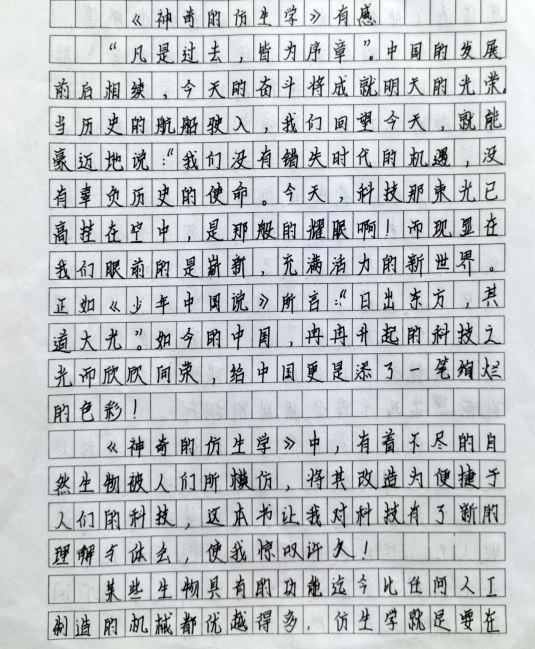 《神奇的仿生学》有感
“凡是过去，皆为序章”。中国的发展
前后相续，今天的奋斗将成就明天的光荣。
当历史的航船驶入，我们回望今天，就能
豪迈地说：“我们没有错失时代的机遇，没
有辜负历史的使命。今天，科技那束光已
高挂在空中，是那般的耀眼啊！而现显在
我们眼前的是崭新，充满活力的新世界。
正如《少年中国说》所言：“日出东方，其
道大光”。如今的中国，冉冉升起的科技之
光而欣欣向荣，给中国更是添了一笔绚烂
的色彩！
《神奇的仿生学》中，有着不尽的自
然生物被人们所模仿，将其改造为便捷于
人们的科技，这本书让我对科技有了新的
理解与体会，使我惊叹许久！
某些生物具有的功能迄今比任何人工
制造的机械都优越得多，仿生学就是要在